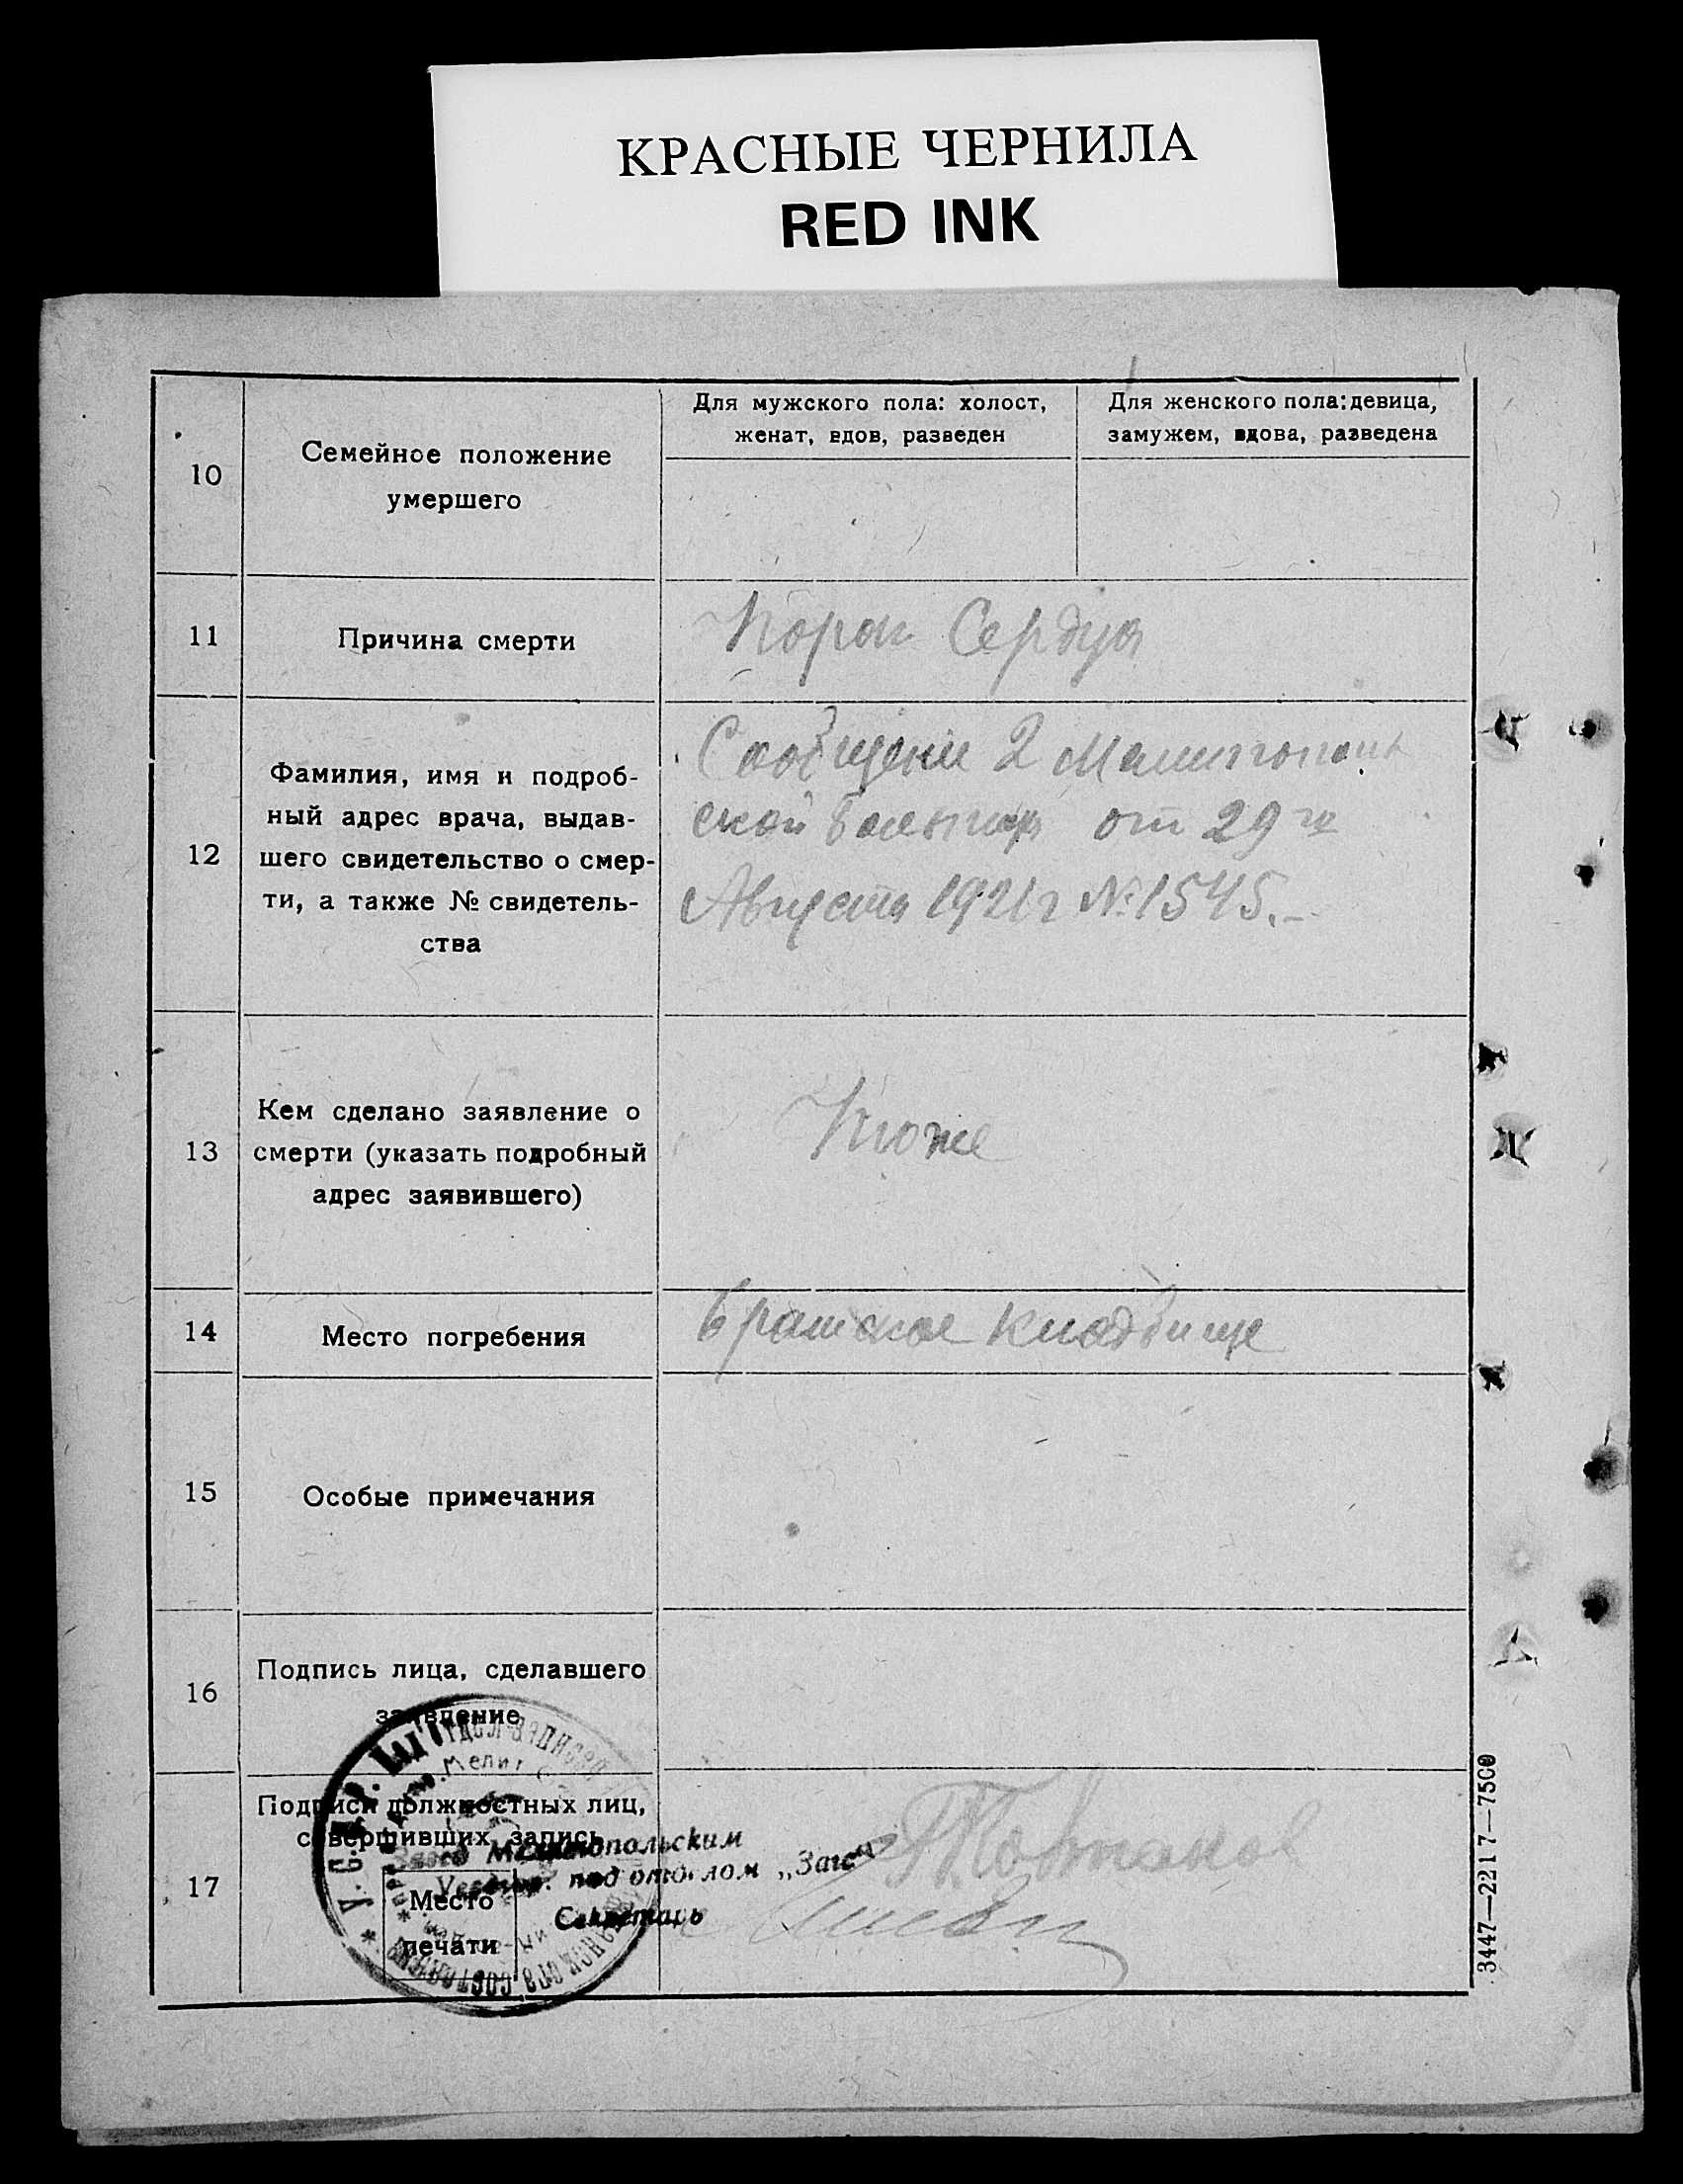 КРАСНЫЕ ЧЕРНИЛА
RED INK
10
Семейное положение
умершего
Для мужского пола: холост,
женат, вдов, разведен
Для женского пола: девица,
замужем, вдова, разведена
11
Причина смерти
Порок Сердца
12
Фамилия, имя и подроб-
ный адрес врача, выдав-
шего свидетельство о смер-
ти, а также № свидетель-
ства
Сообщение 2 Мелитополь
ской больницы от 29 го
Августа 1921 г № 1545.-
13
Кем сделано заявление о
смерти (указать подробный
адрес заявившего)
Тоже
14
Место погребения
Братское кладбище
15
Особые примечания
16
Подпись лица, сделавшего
заявление
17
Подписи должностных лиц,
совершивших запись
Место
печати
У.С.С.Р.
Мелитопольским
под отделом „Загс"
Секретарь
3447—2217—7500